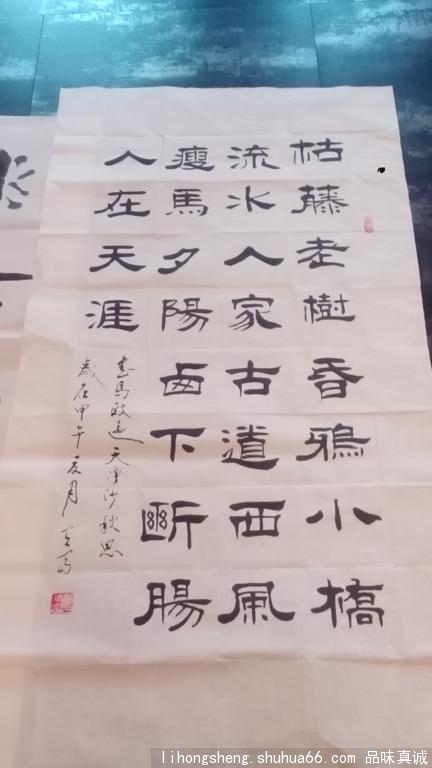 枯藤老樹昏鴉小橋
流水人家古道西風
瘦馬夕陽西下斷腸
人在天涯
書馬致遠天淨沙秋思
歲在甲午夏月
lihongsheng.shuhua66.com 品味真诚